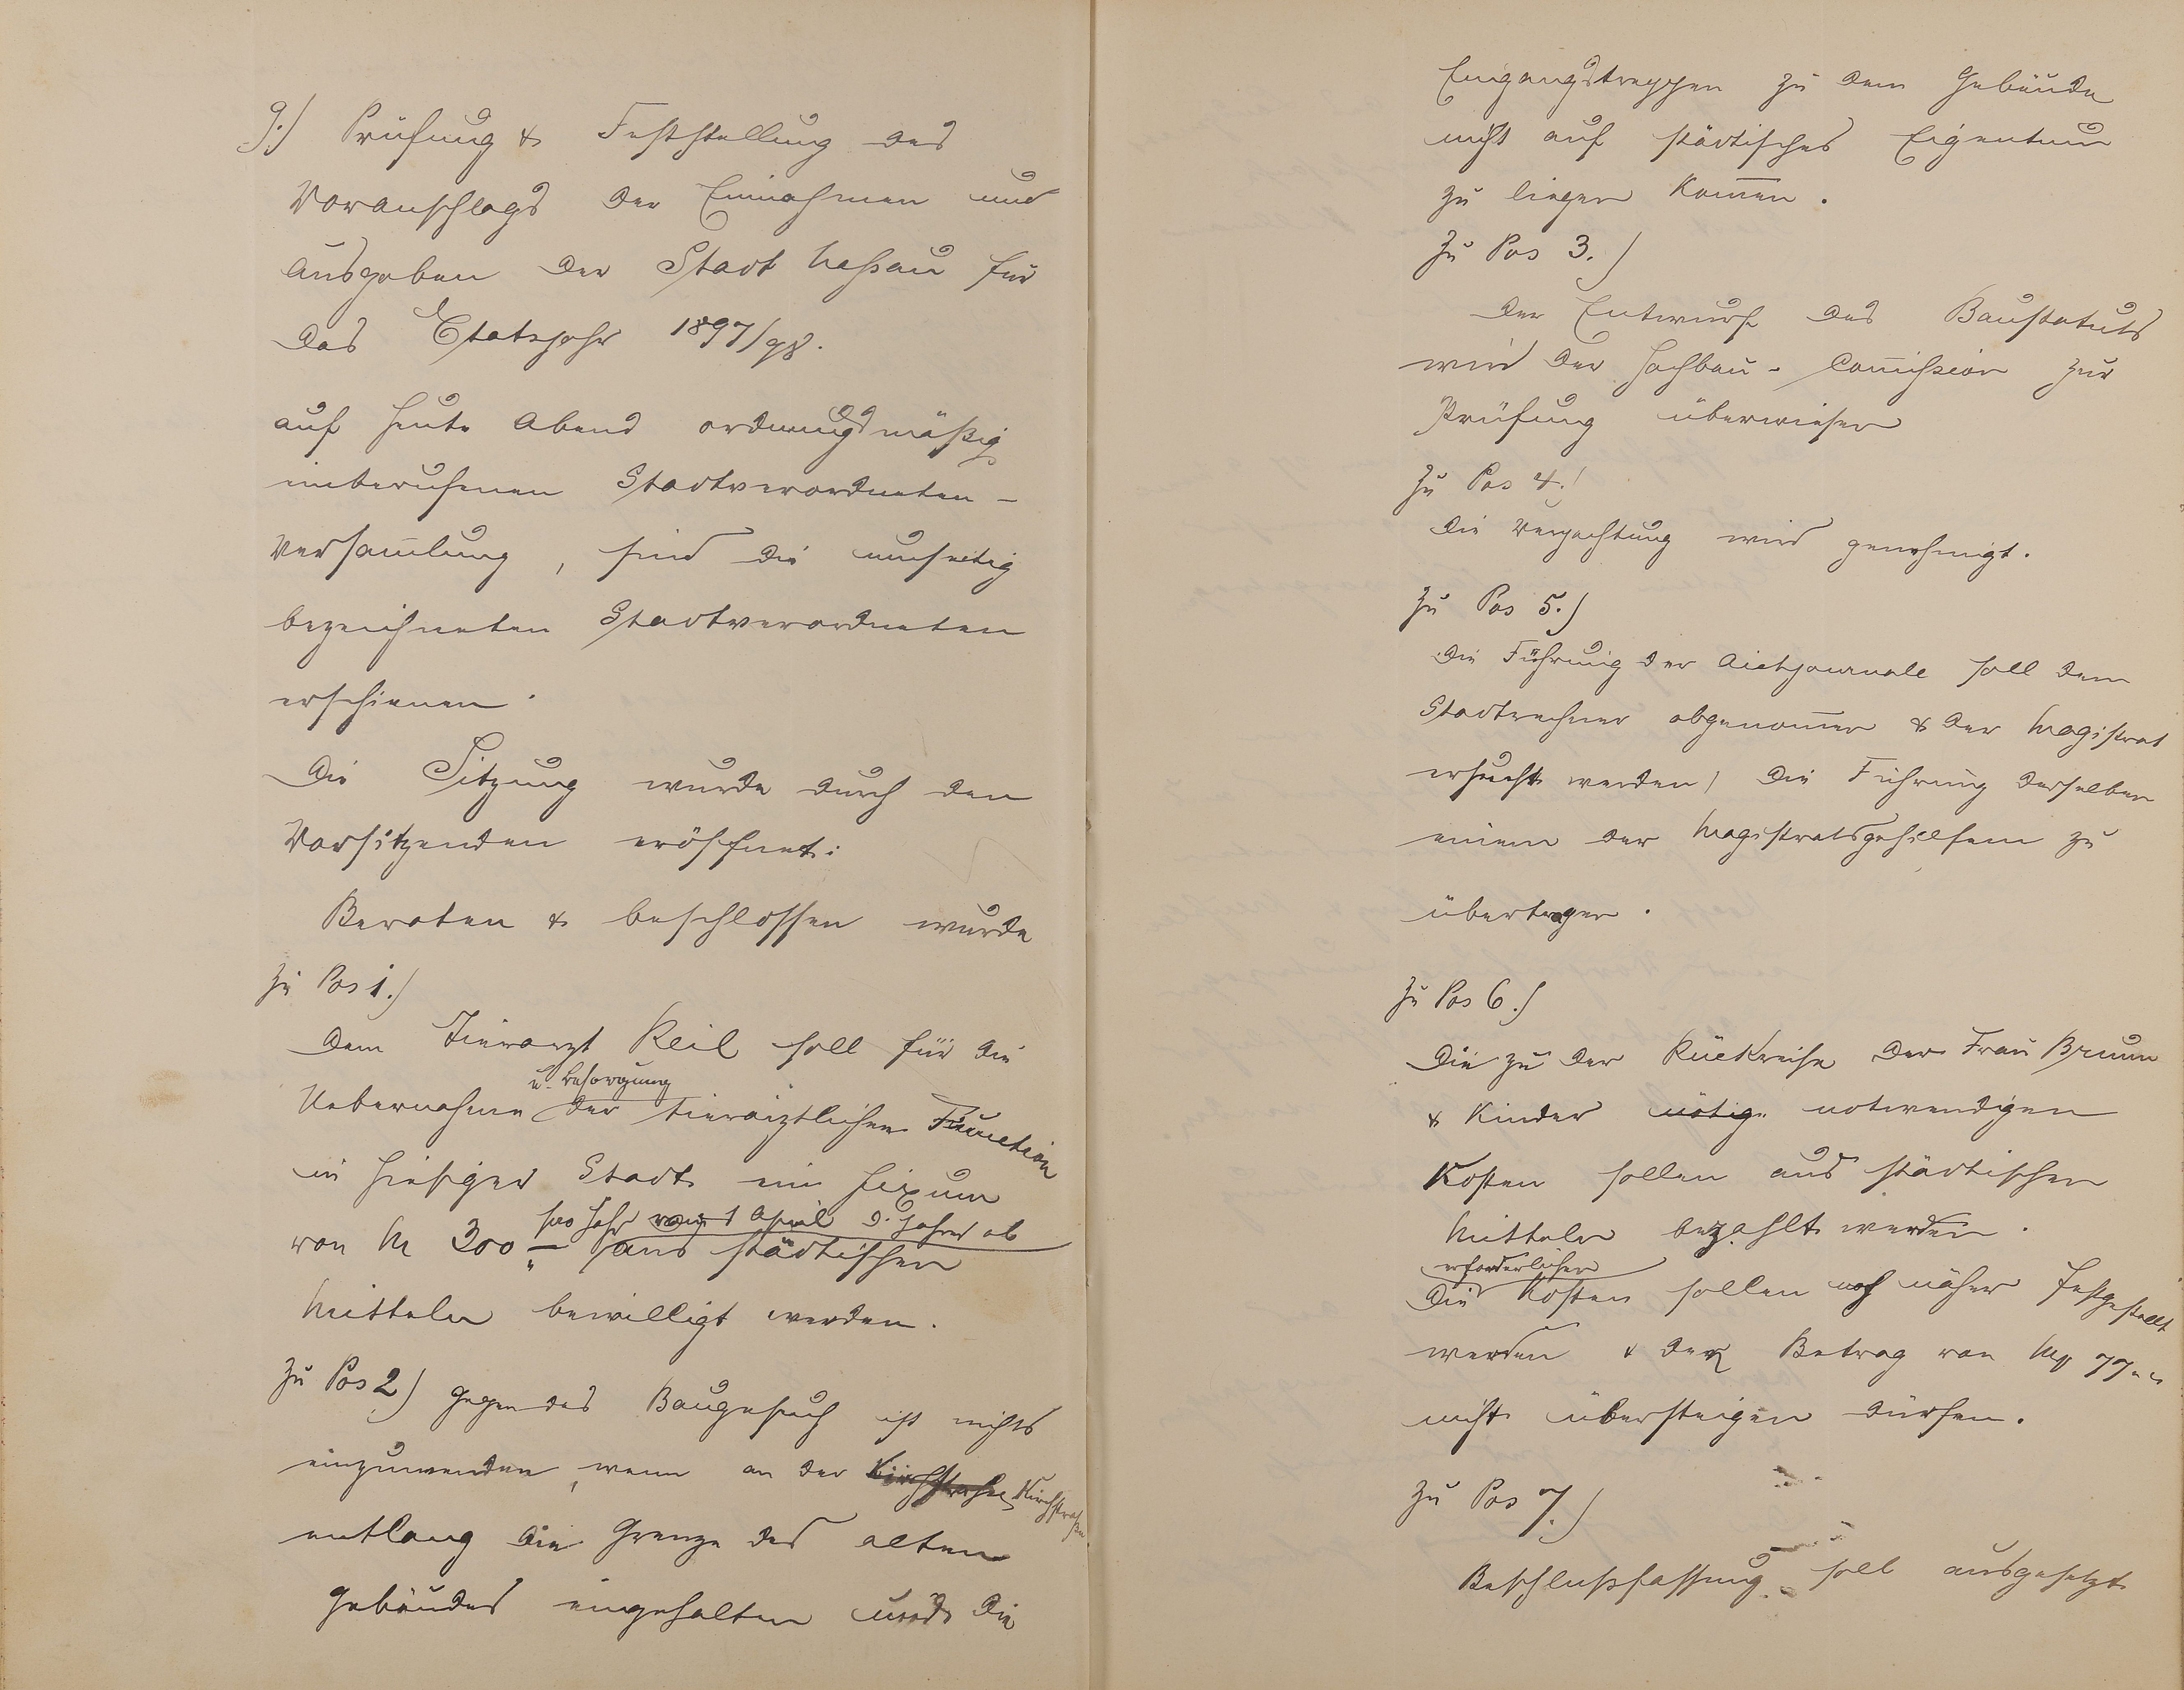 9.) Prüfung & Feststellung des
Voranschlags der Einnahmen und
Ausgaben der Stadt Nassau für
das Etatsjahr 1897/98.
auf heute Abend ordnungsmäßig
einberufenen Stadtverordneten-
versam̅lung, sind die umseitig
bezeichneten Stadtverordneten
erschienen.
Die Sitzung wurde durch den
Vorsitzenden eröffnet:
Beraten & beschlossen wurde
zu Pos 1.)
Dem Tierarzt Keil soll für die
u. Besorgung
Uebernahme der tierärztlichen Function
in hiesiger Stadt ein Fixum
pro Jahr vom 1 April d. Jahres ab
von M 300 – aus städtischen
Mitteln bewilligt werden.
zu Pos 2) Gegen das Baugesuch ist nichts
einzuwenden, wenn an der Kirchstraße Kirchstraße
entlang die Grenze des alten
Gebäudes eingehalten und die
Eingangstreppen zu dem Gebäude
nicht auf städtisches Eigentum
zu liegen kom̅en.
Zu Pos 3.)
Der Entwurf des Baustatuts
wird der Hochbau-Com̅ission zur
Prüfung überwiesen
zu Pos 4.)
Die Verpachtung wird genehmigt.
zu Pos 5.)
Die Führung der soll dem
Stadtrechner abgenom̅en & der Magistrat
ersucht werden, die Führung derselben
einem der Magistratsgehilfen zu
übertragen.
zu Pos 6.)
Die zu der Rückreise der Frau Brumm
& Kinder nötig notwendigen
Kosten sollen aus städtischen
Mitteln bezahlt werden.
erforderlichen
Die Kosten sollen noch näher festgestellt
werden & den Betrag von 77
nicht übersteigen dürfen.
zu Pos 7.)
Beschlußfassung soll ausgesetzt